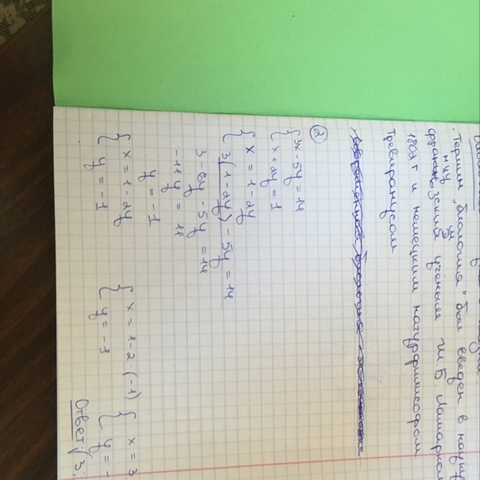 Термин "биология" был введен в науку
французский учёным Ж Б Ламарком
1802 г и немецким натурфилософом
Тревиранусом.
②
{ 3x - 5y = 14
{ x + 2y = 1
{ x = 1 - 2y
{ 3(1 - 2y) - 5y = 14
3 - 6y - 5y = 14
-11y = 11
y = -1
{ x = 1 - 2y { x = 1 - 2 · (-1) { x = 3
{ y = -1 { y = -1 { y = -
Ответ: (3